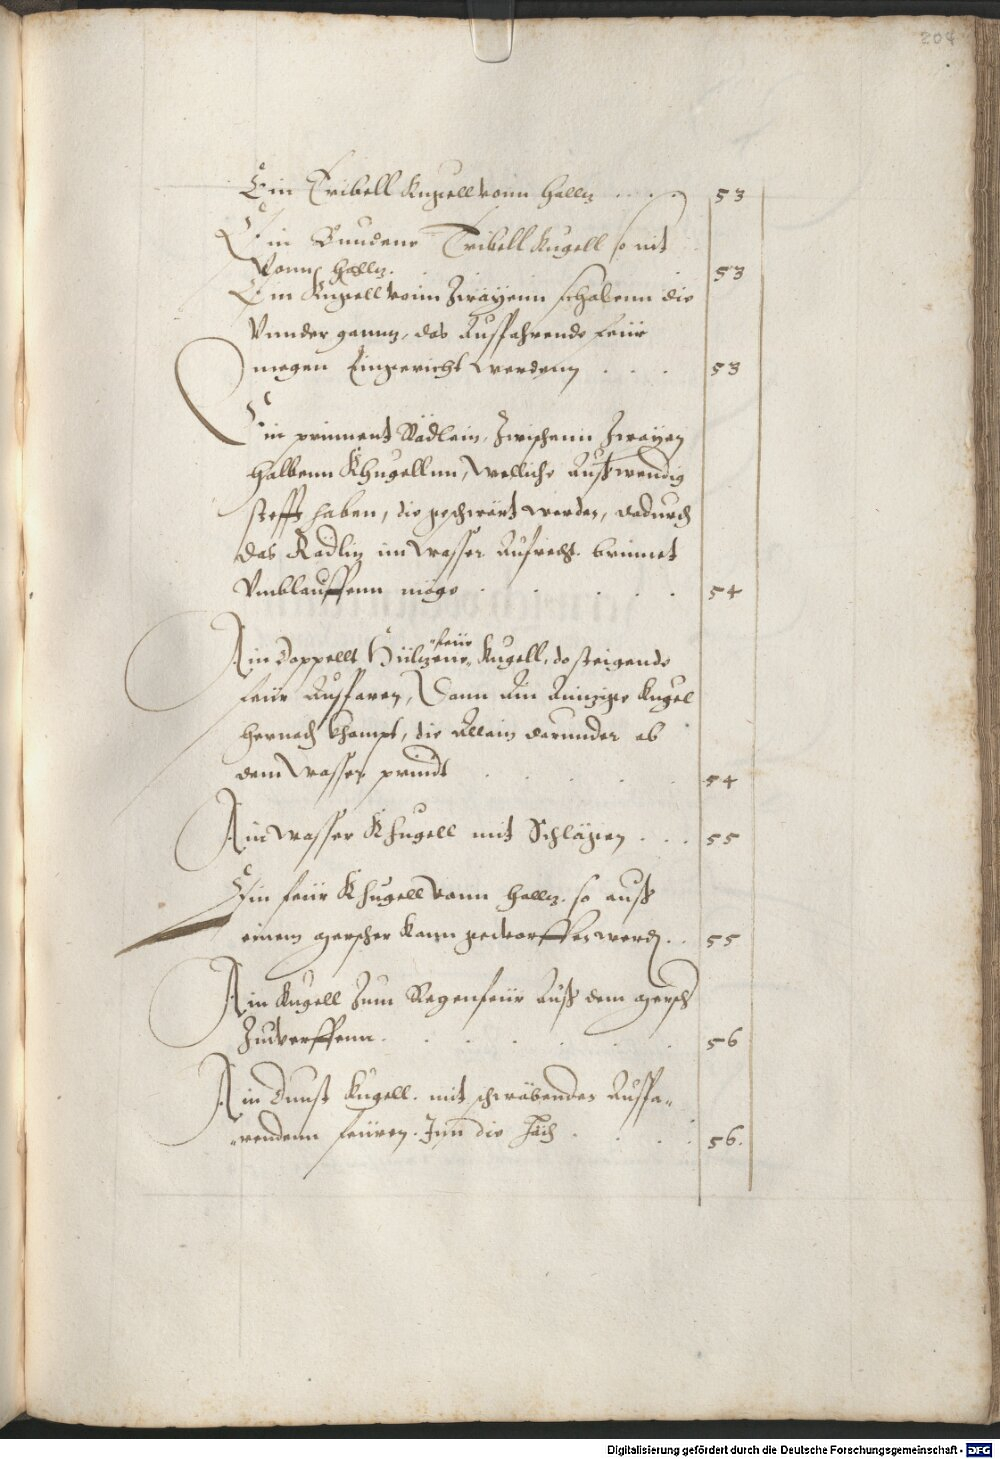 204
Ein Tribell Kugell vonn Holtz . . . . 53
Ein Bundene Tribell Kugell so nit
Vonn Holtz. 53
Ein Kugell vonn Zwayenn schalenn die
Vnnder ganntz, das Auffahrende feür
megen Eingericht werdenn . . . 53
Ein prinnent Rädlein, Zwischenn Zwayen
halbenn Khugellnn, welliche Außwendig
stefft haben, die geschwärt werden, dadurch
das Radlin im wasser Aufrecht brinnet
Vmblauffenn möge . . . . . 54
Ain doppellt Hültzene feür Kugell, do steigende
feür Auffaren, Dann Ain Ainzige Kugel
hernach khompt, die Allain darunder ob
dem Wasser printt . . . . . 54
Ain wasser Khugell mit Schlägen . . . 55
Ein feür Khugell vonn Holtz, so auß
einem
kann geworffen werden . . 55
Ain Kugell Zum Regenfeür Auß dem
Zuwerffenn . . . . . . 56
Ain Dunst Kugell, mit schwäbenden Auffa-
-rendenn feüren. Inn die Höch . . . . 56.
Digitalisierung gefördert durch die Deutsche Forschungsgemeinschaft - DFG